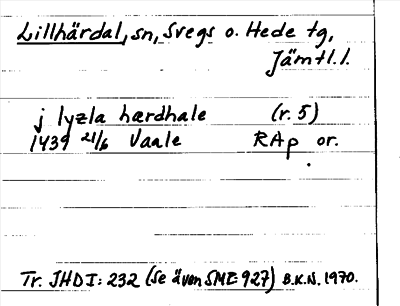 Lillhärdal, sn, Svegs o. Hede tg,
Jämtl. l.
j lyzla hærdhale (r. 5)
1439 21/6 Vaale RAp or.
Tr. JHD I: 232 (Se även SME 927) B.K.N. 1970.